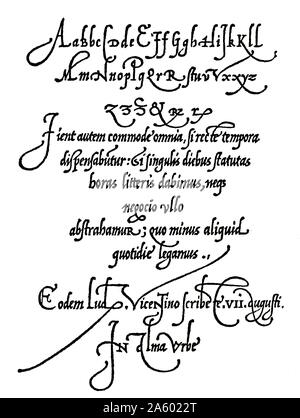 Aabbc Dde E f F g G h H i I J k K l L
M m N n o p P q Q r R ſ t u v V x x y z
Z 3 S & R
Fient autem commode omnia, ſi recte tempora
diſpenſabũtur: Et ſi ſingulis diebus ſtatutas
horas litteris dabimus, neqз
negocio vllo
abſtrahamur; quo minus aliquid
quotidie legamus .,
Eodem Lud. Vicentino ſcribete. VII. auguſti.
IN Alma Vrbe
alamy
Image ID: 2A6022T
www.alamy.com